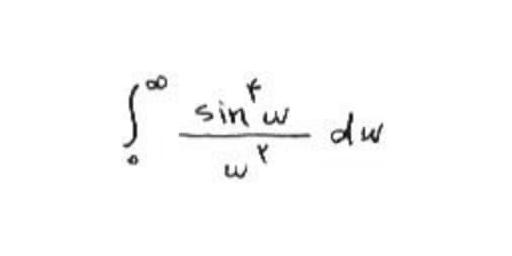 $\int_{۰}^{\infty} \frac{\sin^{۴} w}{w^{۲}} \, dw$